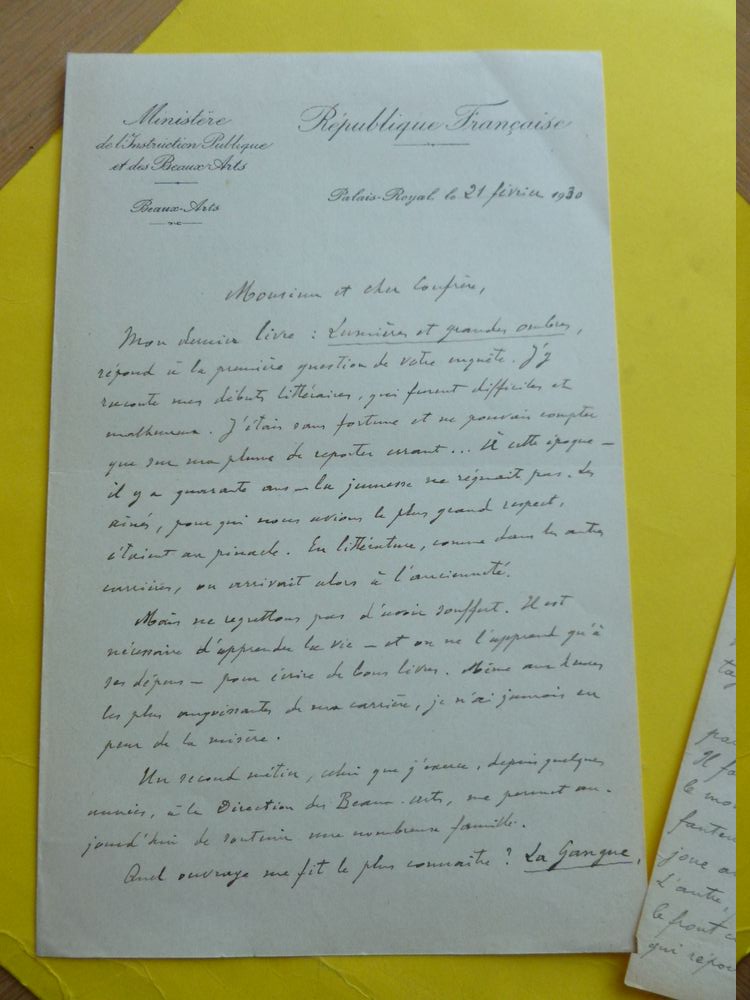 Ministère
de l'Instruction Publique
et des Beaux-Arts
Beaux-Arts
République Française
Palais-Royal, le 21 février 1930
Monsieur et cher Confrère,
Mon dernier livre : Lumières et grandes ombres,
répond à la première question de votre enquête. J'y
raconte mes débuts littéraires, qui furent difficiles et
malheureux. J'étais sans fortune et ne pouvais compter
que sur ma plume de reporter errant... À cette époque —
il y a quarante ans — la jeunesse ne régnait pas. Les
aînés, pour qui nous avions le plus grand respect,
étaient au pinacle. En littérature, comme dans les autres
carrières, on arrivait alors à l'ancienneté.
Mais ne regrettons pas d'avoir souffert. Il est
nécessaire d'apprendre la vie — et on ne l'apprend qu'à
ses dépens — pour écrire de bons livres. Même aux heures
les plus angoissantes de ma carrière, je n'ai jamais eu
peur de la misère.
Un second métier, celui que j'exerce, depuis quelques
années, à la Direction des Beaux-Arts, me permet au-
jourd'hui de soutenir une nombreuse famille.
Quel ouvrage me fit le plus connaître ? La Gangue,
Il fa
le mo
fauteu
joue a
L'autre,
le front c
qui repo